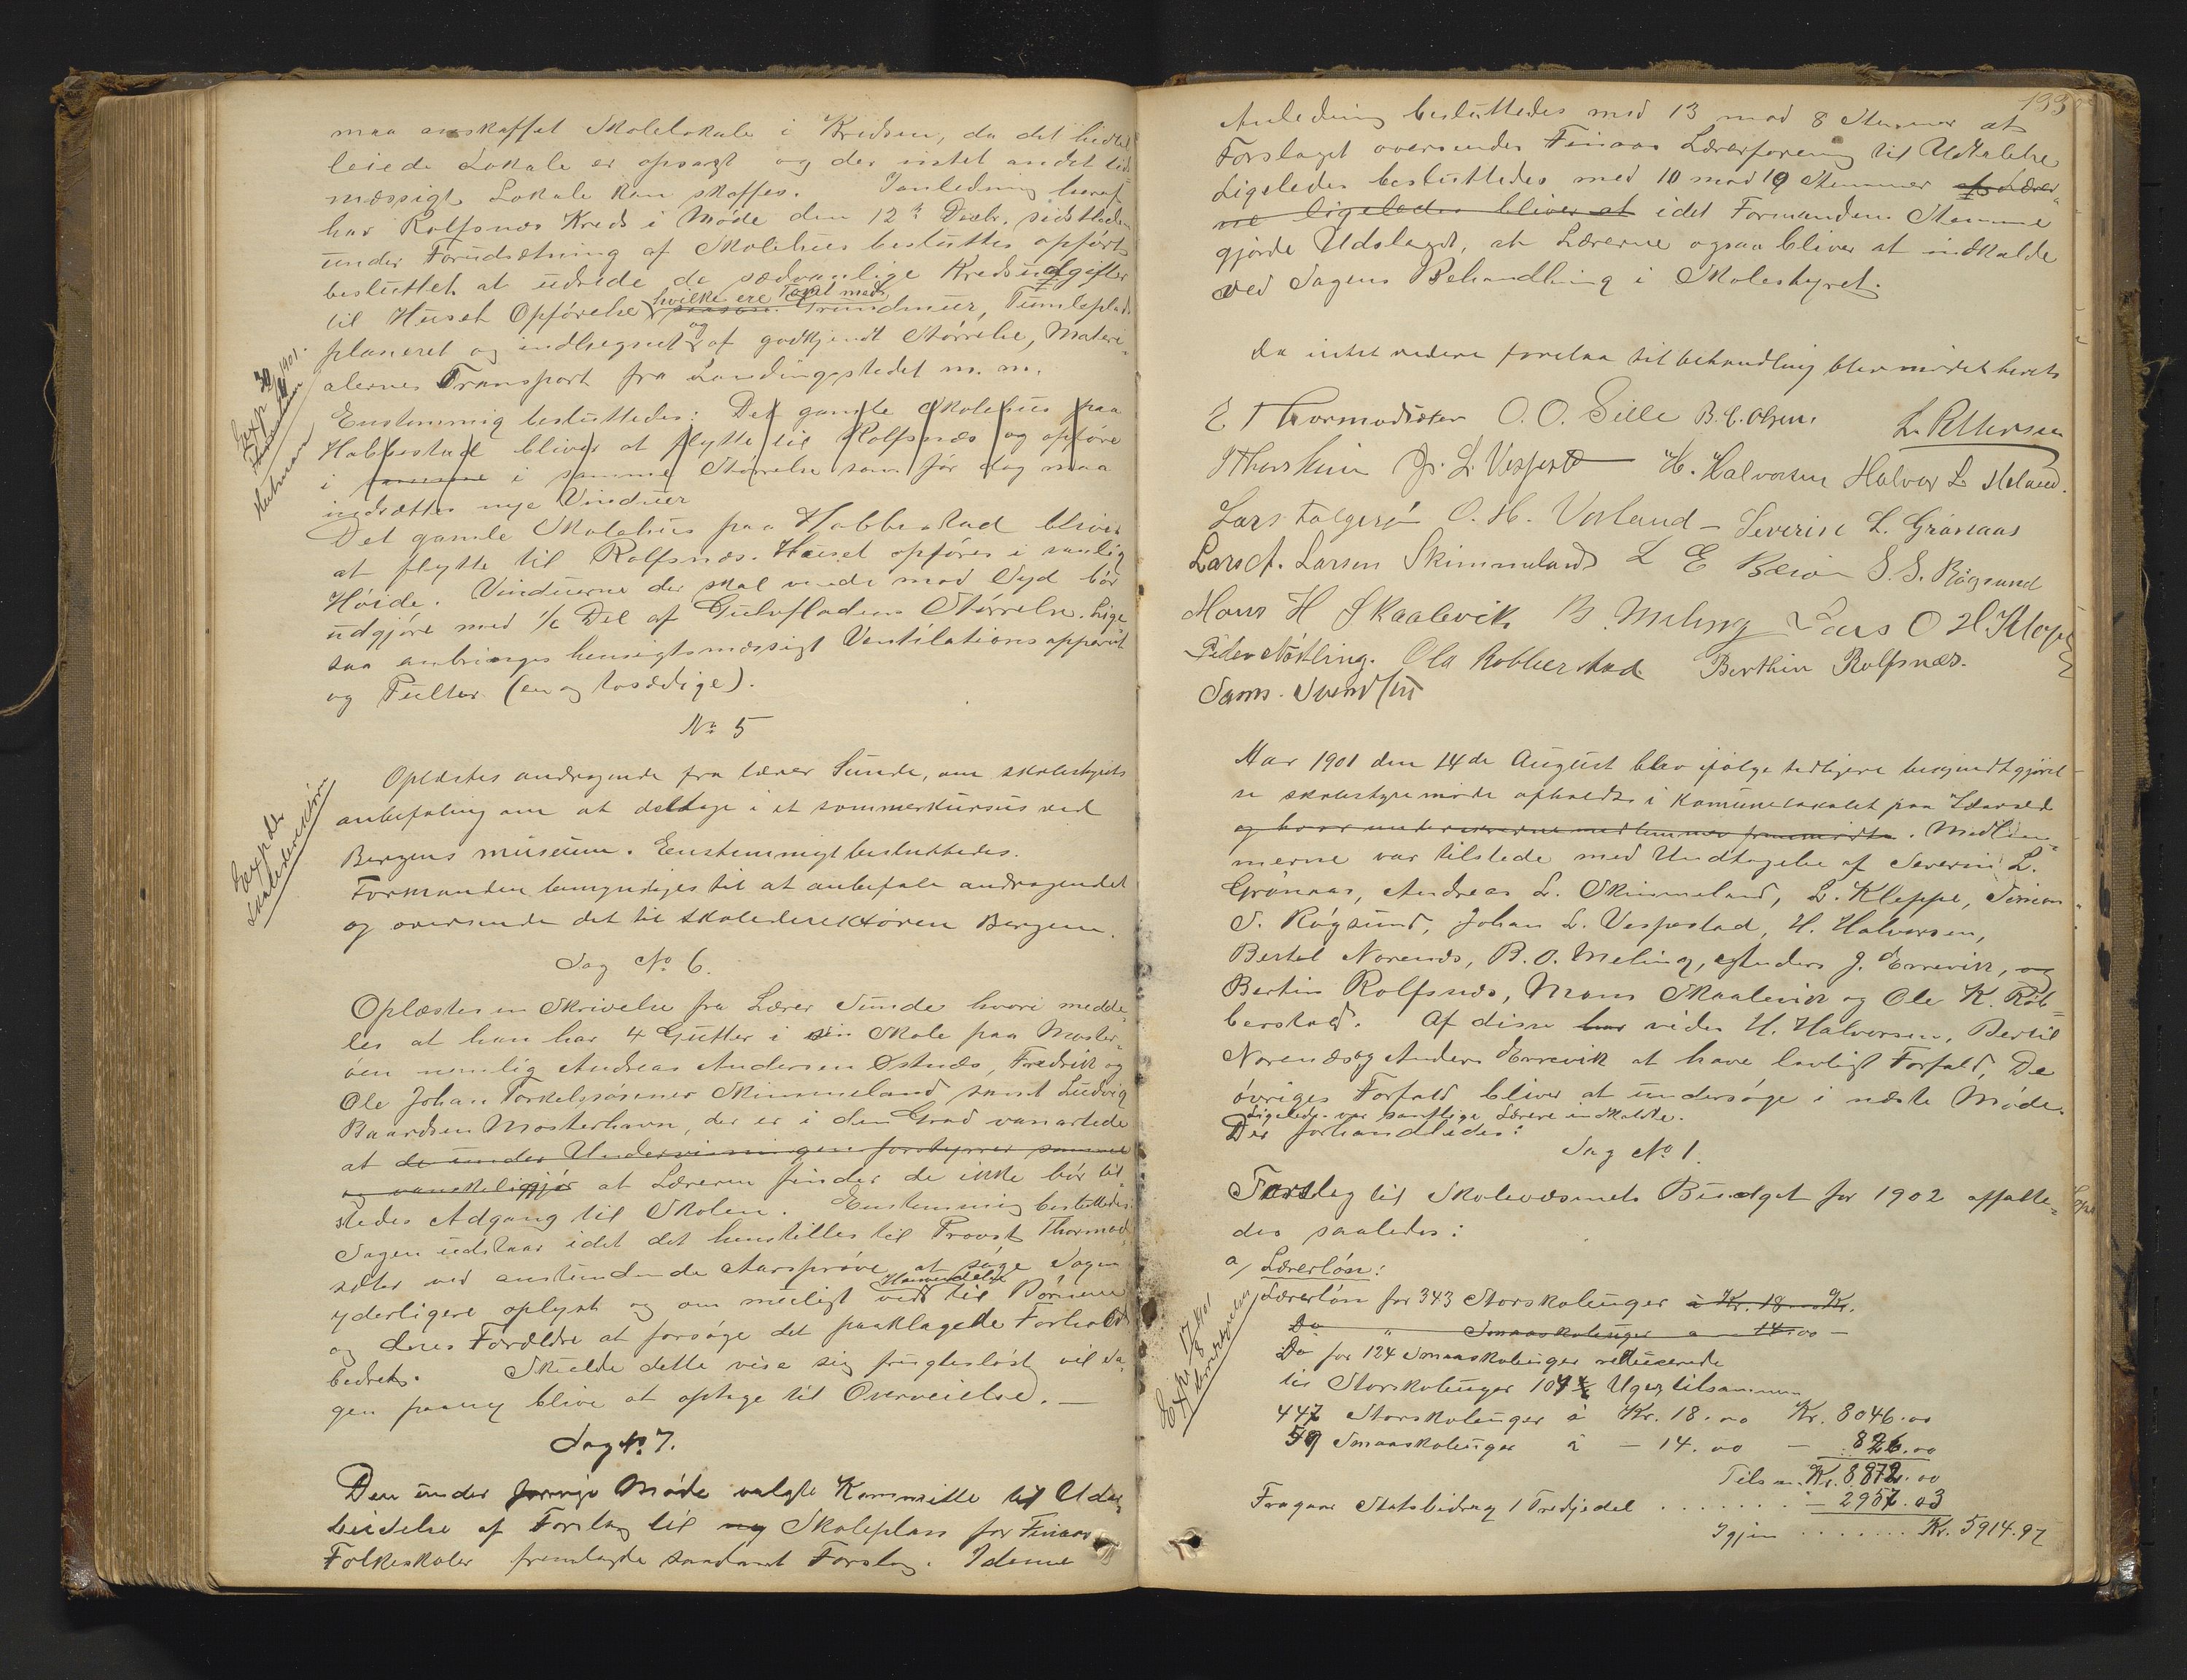 maa anskaffet Skolelokale i Kredsen, da det hidtil
leiede Lokale er opsagt og der intet andet tid-
mæssigt Lokale kan skaffes. Ianledning heraf
har Rolfsnæs Kreds i Møde den 12te Decbr. sidstleden
under Forudsætning af Skolehus besluttes opført
besluttet at udrede de sædvanlige Kredsudgifter
hvilke ere Toget med
til Huset Opførelse Grundmur, Tumleplads
planeret og indhegnet og af godkjendt Størrelse, Materi-
alernes Transport fra Landingsstedet m. m.
Exp 1901.
Enstemmig besluttedes: Det gamle Skolehus paa
Habbestad bliver at flytte til Rolfsnæs og opføre
i samme i samme Størrelse som før dog maa
indsættes nye Vinduer
Det gamle Skolehus paa Habbestad bliver
at flytte til Rolfsnæs. Huset opføres i vanlig
Høide. Vinduerne der skal vende mod Syd bør
udgjøre med 1/6 Del af Gulvfladens Størrelse. Lige
saa anbringes hensigtsmæssigt Ventilationsapparat
og Pulter (en og tosædige).
No 5
Oplæstes andragende fra lærer Sunde, om skolestyrets
anbefaling om at deltage i et sommerkursus ved
Bergens museum. Eenstemmigt besluttedes.
Exp. til
skoledirektøren
Formanden bemyndiges til at anbefale andragendet
og oversende det til skoledirektøren Bergen.
Sag No 6.
Oplæstes en Skrivelse fra Lærer Sunde hvori medde-
les at han har 4 Gutter i sin Skole paa Moster-
øen nemlig Andreas Andersen Østnæs, Fredrik og
Ole Johan Torkelssønner Skimmeland samt Ludvig
Baardsen Mosterhavn, der er i den Grad vanartede
at de under Undervisningen forstyrrer samme
og vanskeliggjør at Læreren finder de ikke bør til-
stedes Adgang til Skolen. Enstemmig besluttedes:
Sagen udstaar idet det henstilles til Provst Thormod-
sæter ved anstundende Aarsprøve at søge Sagen
yderligere oplyst og om muligt ved Henvendelse til Børnene
og deres Forældre at forsøge det paaklagede Forhold
bedret. Skulde dette vise sig frugtesløst vil Sa-
gen paany blive at optage til Overveielse. —
Sag No 7.
Den under forrige Møde valgte Kommitte til Udar-
beidelse af Forslag til ny Skoleplan for Finaas
Folkeskoler fremlagde saadant Forslag. I denne
133
Anledning besluttedes med 13 mod 8 Stemmer at
Forslaget oversendes Finaas Lærerforening til Udtalelse
Ligeledes besluttedes med 10 mod 10 Stemmer at Lærer-
ne ligeledes bliver at idet Formandens Stemme
gjorde Udslaget, at Lærerne ogsaa bliver at indkalde
ved Sagens Behandling i Skolestyret.
Da intet videre forelaa til behandling blev mødet hevet
E Thormodsæter O. O. Sille B. C. Olsen. L. Pettersen
J. L. Vespest H. Halvorsen Halvor L. Meland.
Lars Folgerø O. H. Vorland – Severin L. Grønaas
Lars A. Larsen Skimmeland L E Bævø S. S. Røgsund
Mons H Skaalevik B. Meling Lars O H. Klep
Peder Nøkling. Ola Robberstad Berthin Rolfsnæs.
Sams. Svendsen
Aar 1901 den 14de August blev ifølge tidligere bekjendtgjørel-
se skolestyremøde afholdt i Komunelokalet paa Leirvd
og hvor undertegnede medlemmer fremmødte. Medlem-
merne var tilstede med Undtagelse af Severin L.
Grønaas, Andreas L. Skimmeland, L. Kleppe, Simon
S. Røgsund, Johan L. Vespestad, H. Halvorsen,
Bertel Norends, B. O. Meling, Anders J. Errevik, og
Bertin Rolfsnæs, Mons Skaalevik og Ole K. Rob-
berstad. Af disse har vides H. Halvorsen, Bertil
Norends og Anders Errevik at have lovligt Forfald. De
øvriges Forfald bliver at undersøge i næste Møde.
Ligeledes var samtlige Lærere indkaldte.
Der forhandledes:
Sag No 1.
Forslag til Skolevæsenets Budget for 1902 affatte-
des saaledes:
a, Lærerløn:
Exp. 17/8 1901
Lærerløn for 343 Storskoleuger à Kr. 18.00 Kr.
Do " Smaaskoleuger a – 14.00 –
Do for 124 Smaaskoleuger reducerede
til Storskoleuger 104 Uger, tilsammen
447 Storskoleuger à Kr. 18.00 Kr. 8046.00
59 Smaaskoleuger à – 14.00 – 826.00
Tils. Kr. 8872.00
Fragaar Statsbidrag 1 Tredjedel . . . . . . . – 2957.03
Igjen . . . . . . . Kr. 5914.97